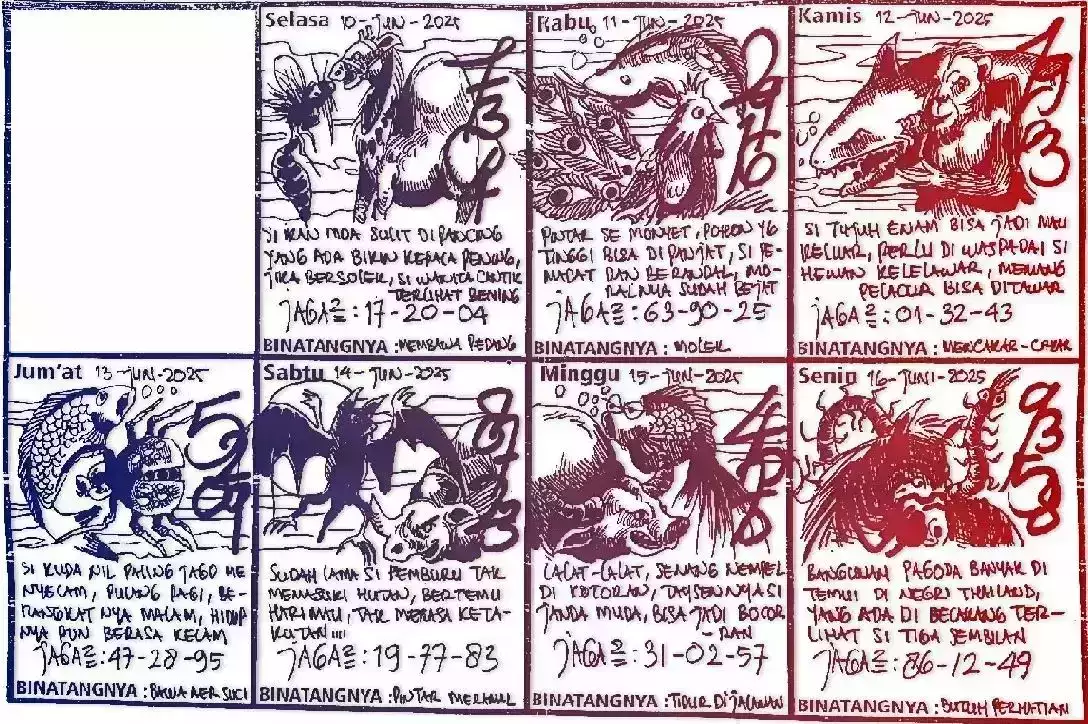 Selasa 10-JUN-2025
SI IKAN MOA SULIT DIPANCING
YANG ADA BIKIN KEPALA PENING,
JIKA BERSOLEK, SI WANITA CANTIK
TERLIHAT BENING
JAGA2 : 17-20-04
BINATANGNYA : MEMBAWA PEDANG
Rabu 11-JUN-2025
PINTAR SE MONYET, POHON YG
TINGGI BISA DI PANJAT, SI
DAN BERANDAL, MO-
RALNYA SUDAH BEJAT
JAGA2 : 63-90-25
BINATANGNYA : MOLEK
Kamis 12-JUN-2025
SI TUJUH ENAM BISA JADI MAU
KELUAR, PERLU DI WASPADAI SI
HEWAN KELELAWAR, MEMANG
PELACUR BISA DITAWAR
JAGA2 : 01-32-43
BINATANGNYA : MENCAKAR-CAKAR
Jum'at 13-JUN-2025
SI KUDA NIL PALING JAGO ME
NYELAM, PULANG PAGI, BE-
RANGKAT NYA MALAM, HIDUP
NYA PUN BERASA KELAM
JAGA2 : 47-28-95
BINATANGNYA : BAWA AER SUCI
Sabtu 14-JUN-2025
8
7
3
SUDAH LAMA SI PEMBURU TAK
MEMASUKI HUTAN, BERTEMU
HARIMAU, TAK MERASA KETA-
KUTAN !!!!
JAGA2 : 19-77-83
BINATANGNYA : PINTAR MERAMAL
Minggu 15-JUN-2025
LALAT-LALAT, SENANG NEMPEL
DI KOTORAN, SI
JANDA MUDA, BISA JADI BOCOR
-RAN
JAGA2 : 31-02-57
BINATANGNYA : TIDUR DI JALANAN
Senin 16-JUNI-2025
9
3
5
8
BANGUNAN PAGODA BANYAK DI
TEMUI DI NEGRI THAILAND,
YANG ADA DI BELAKANG TER-
LIHAT SI TIGA SEMBILAN
JAGA2 : 86-12-49
BINATANGNYA : BUTUH PERHATIAN